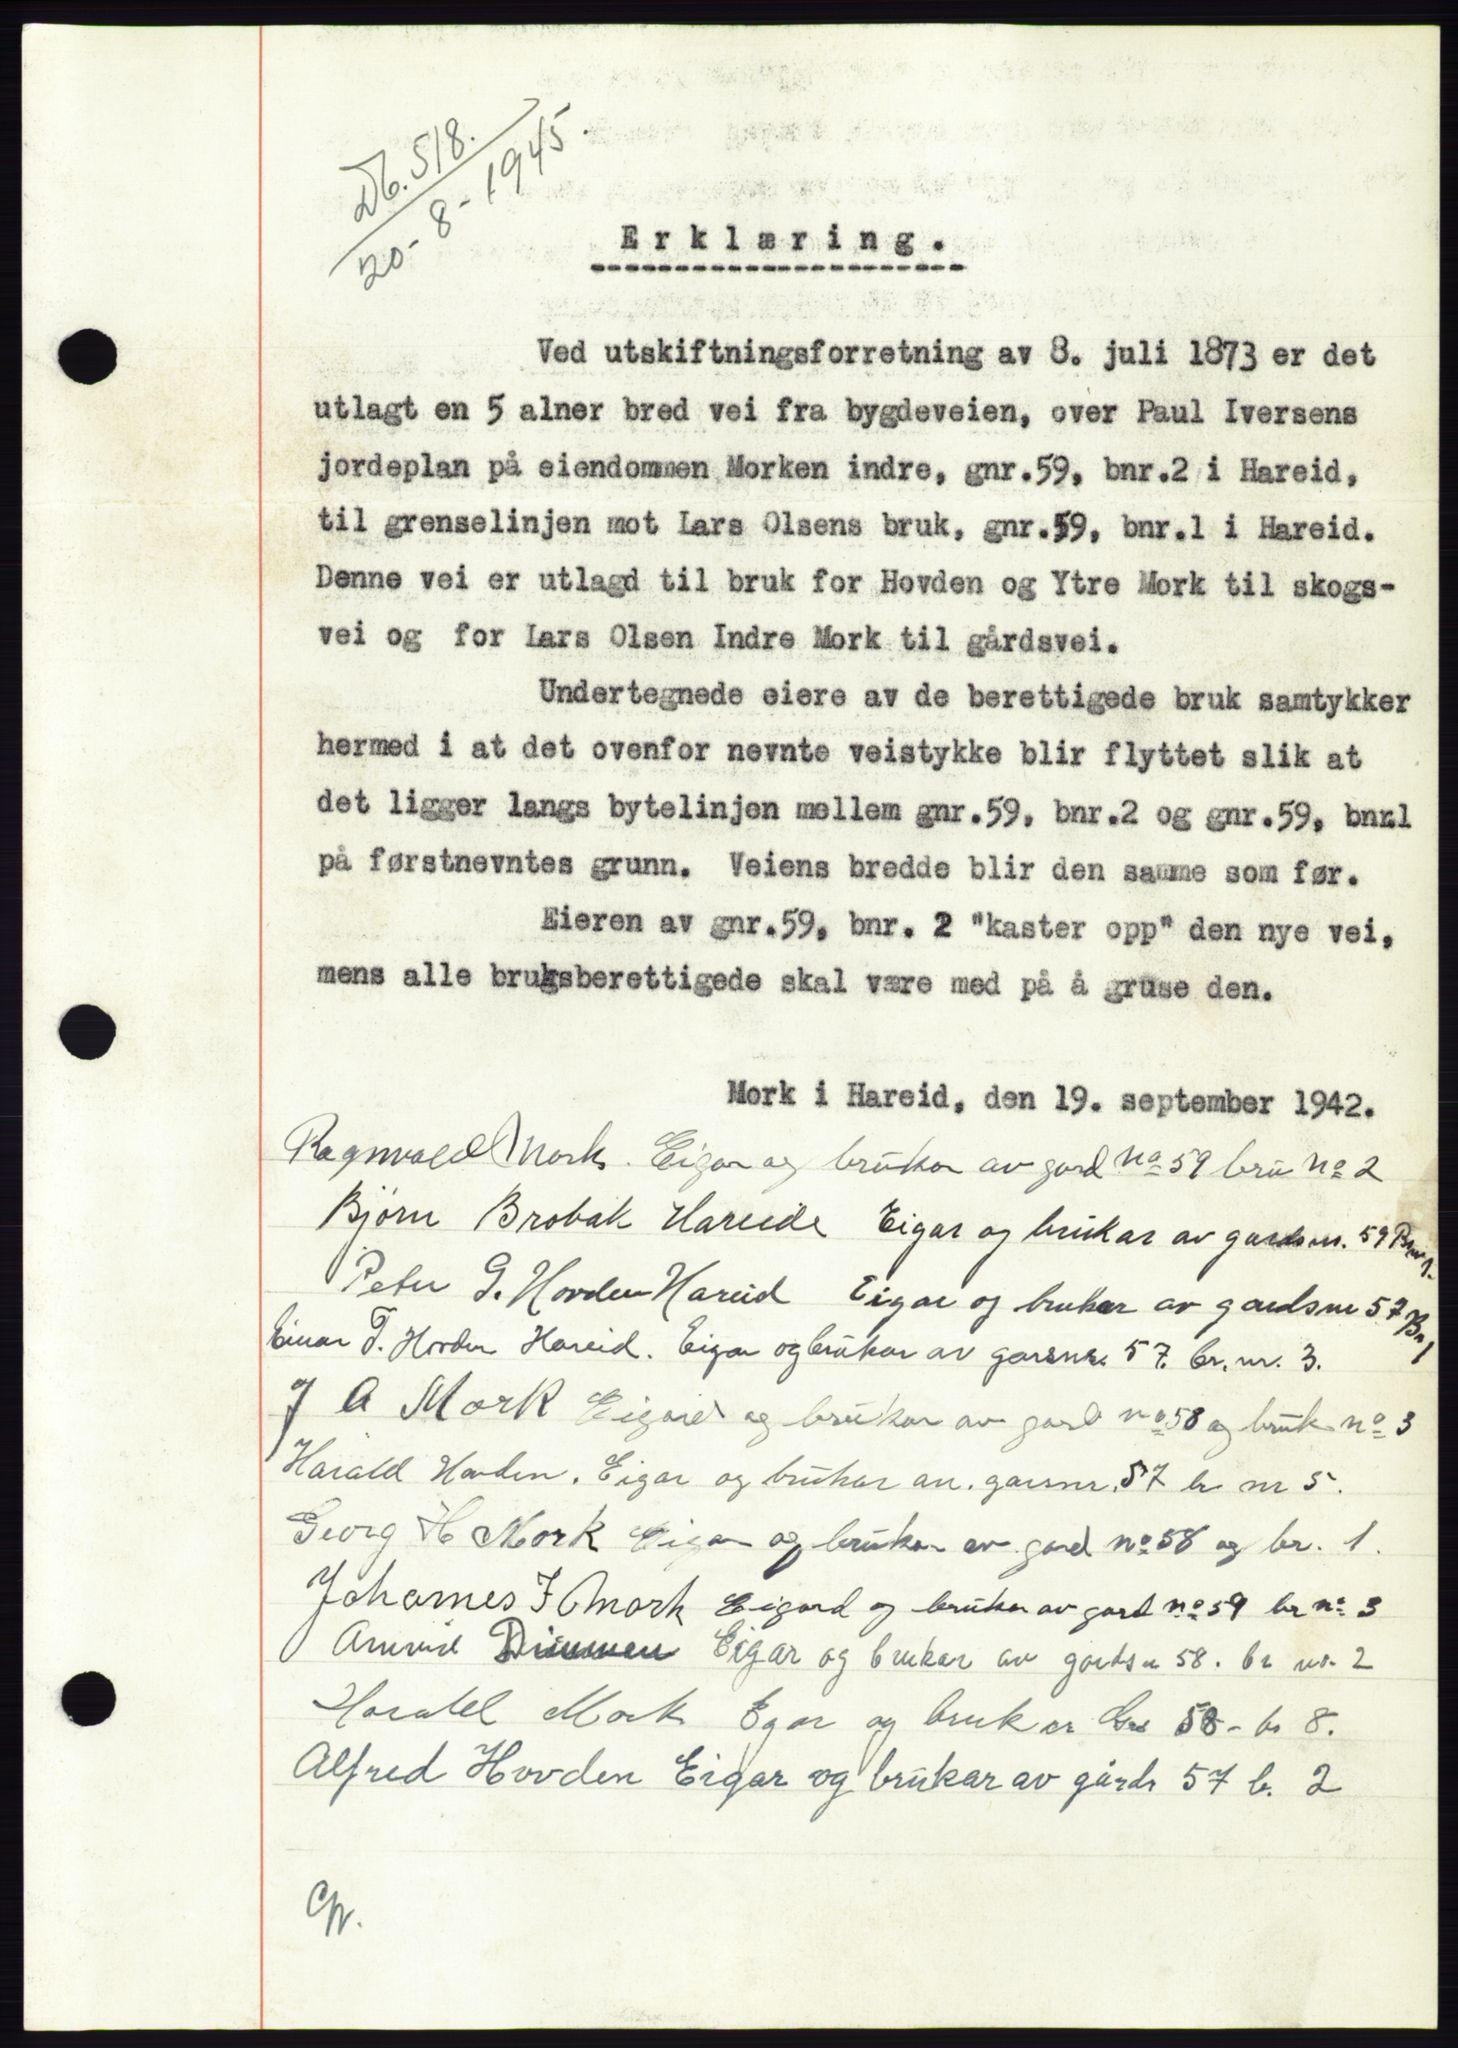 Db. 518.
20-8-1945.
Erklæring.
Ved utskiftningsforretning av 8. juli 1873 er det
utlagt en 5 alner bred vei fra bygdeveien, over Paul Iversens
jordeplan på eiendommen Morken indre, gnr.59, bnr.2 i Hareid,
til grenselinjen mot Lars Olsens bruk, gnr.59, bnr.1 i Hareid.
Denne vei er utlagd til bruk for Hovden og Ytre Mork til skogs-
vei og for Lars Olsen Indre Mork til gårdsvei.
Undertegnede eiere av de berettigede bruk samtykker
hermed i at det ovenfor nevnte veistykke blir flyttet slik at
det ligger langs bytelinjen mellem gnr.59, bnr.2 og gnr.59, bnr.1
på førstnevntes grunn. Veiens bredde blir den samme som før.
Eieren av gnr.59, bnr. 2 "kaster opp" den nye vei,
mens alle bruksberettigede skal være med på å gruse den.
Mork i Hareid, den 19. september 1942.
Ragnvald Mork. Eigar og brukar av gard no 59 bru no 2
Bjørn Brobak Hareide Eigar og brukar av gardsnr. 59 Bnr 1.
Peter G. Hovden Hareid Eigar og brukar av gardsnr 57 Bn 1
Einar T. Hovden Hareid. Eigar og brukar av garsnr. 57. br. nr. 3.
J A Mork Eigard og brukar av gard no 58 og bruk no 3
Harald Hovden. Eigar og brukar av. garsnr. 57 br nr 5.
Georg H Mork Eigar og brukar av gard no 58 og br. 1.
Johannes J Mork Eigard og brukar av gard no 59 br no 3
Arnvid Dimmen Eigar og brukar av gards n 58. br nr. 2
Harald Mork Egar og bruker 58 - br 8.
Alfred Hovden Eigar og brukar av gårds 57 b. 2